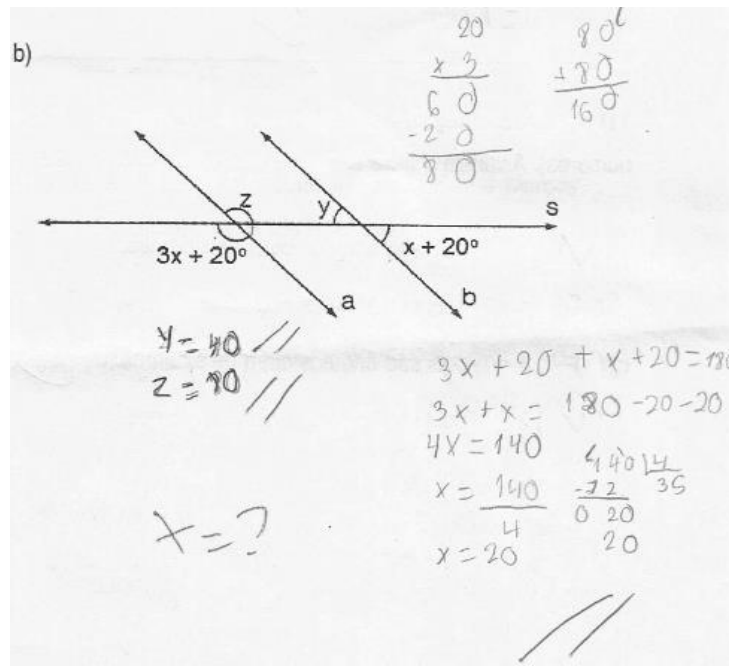 b)
20
x 3
60
-20
80
80
+80
160
z
y
s
3x + 20°
x + 20°
a
b
y = 40
z = 80
x = ?
3x + 20 + x + 20 = 180
3x + x = 180 - 20 - 20
4x = 140
x = 140
4
x = 20
140 4
-12 35
0 20
20